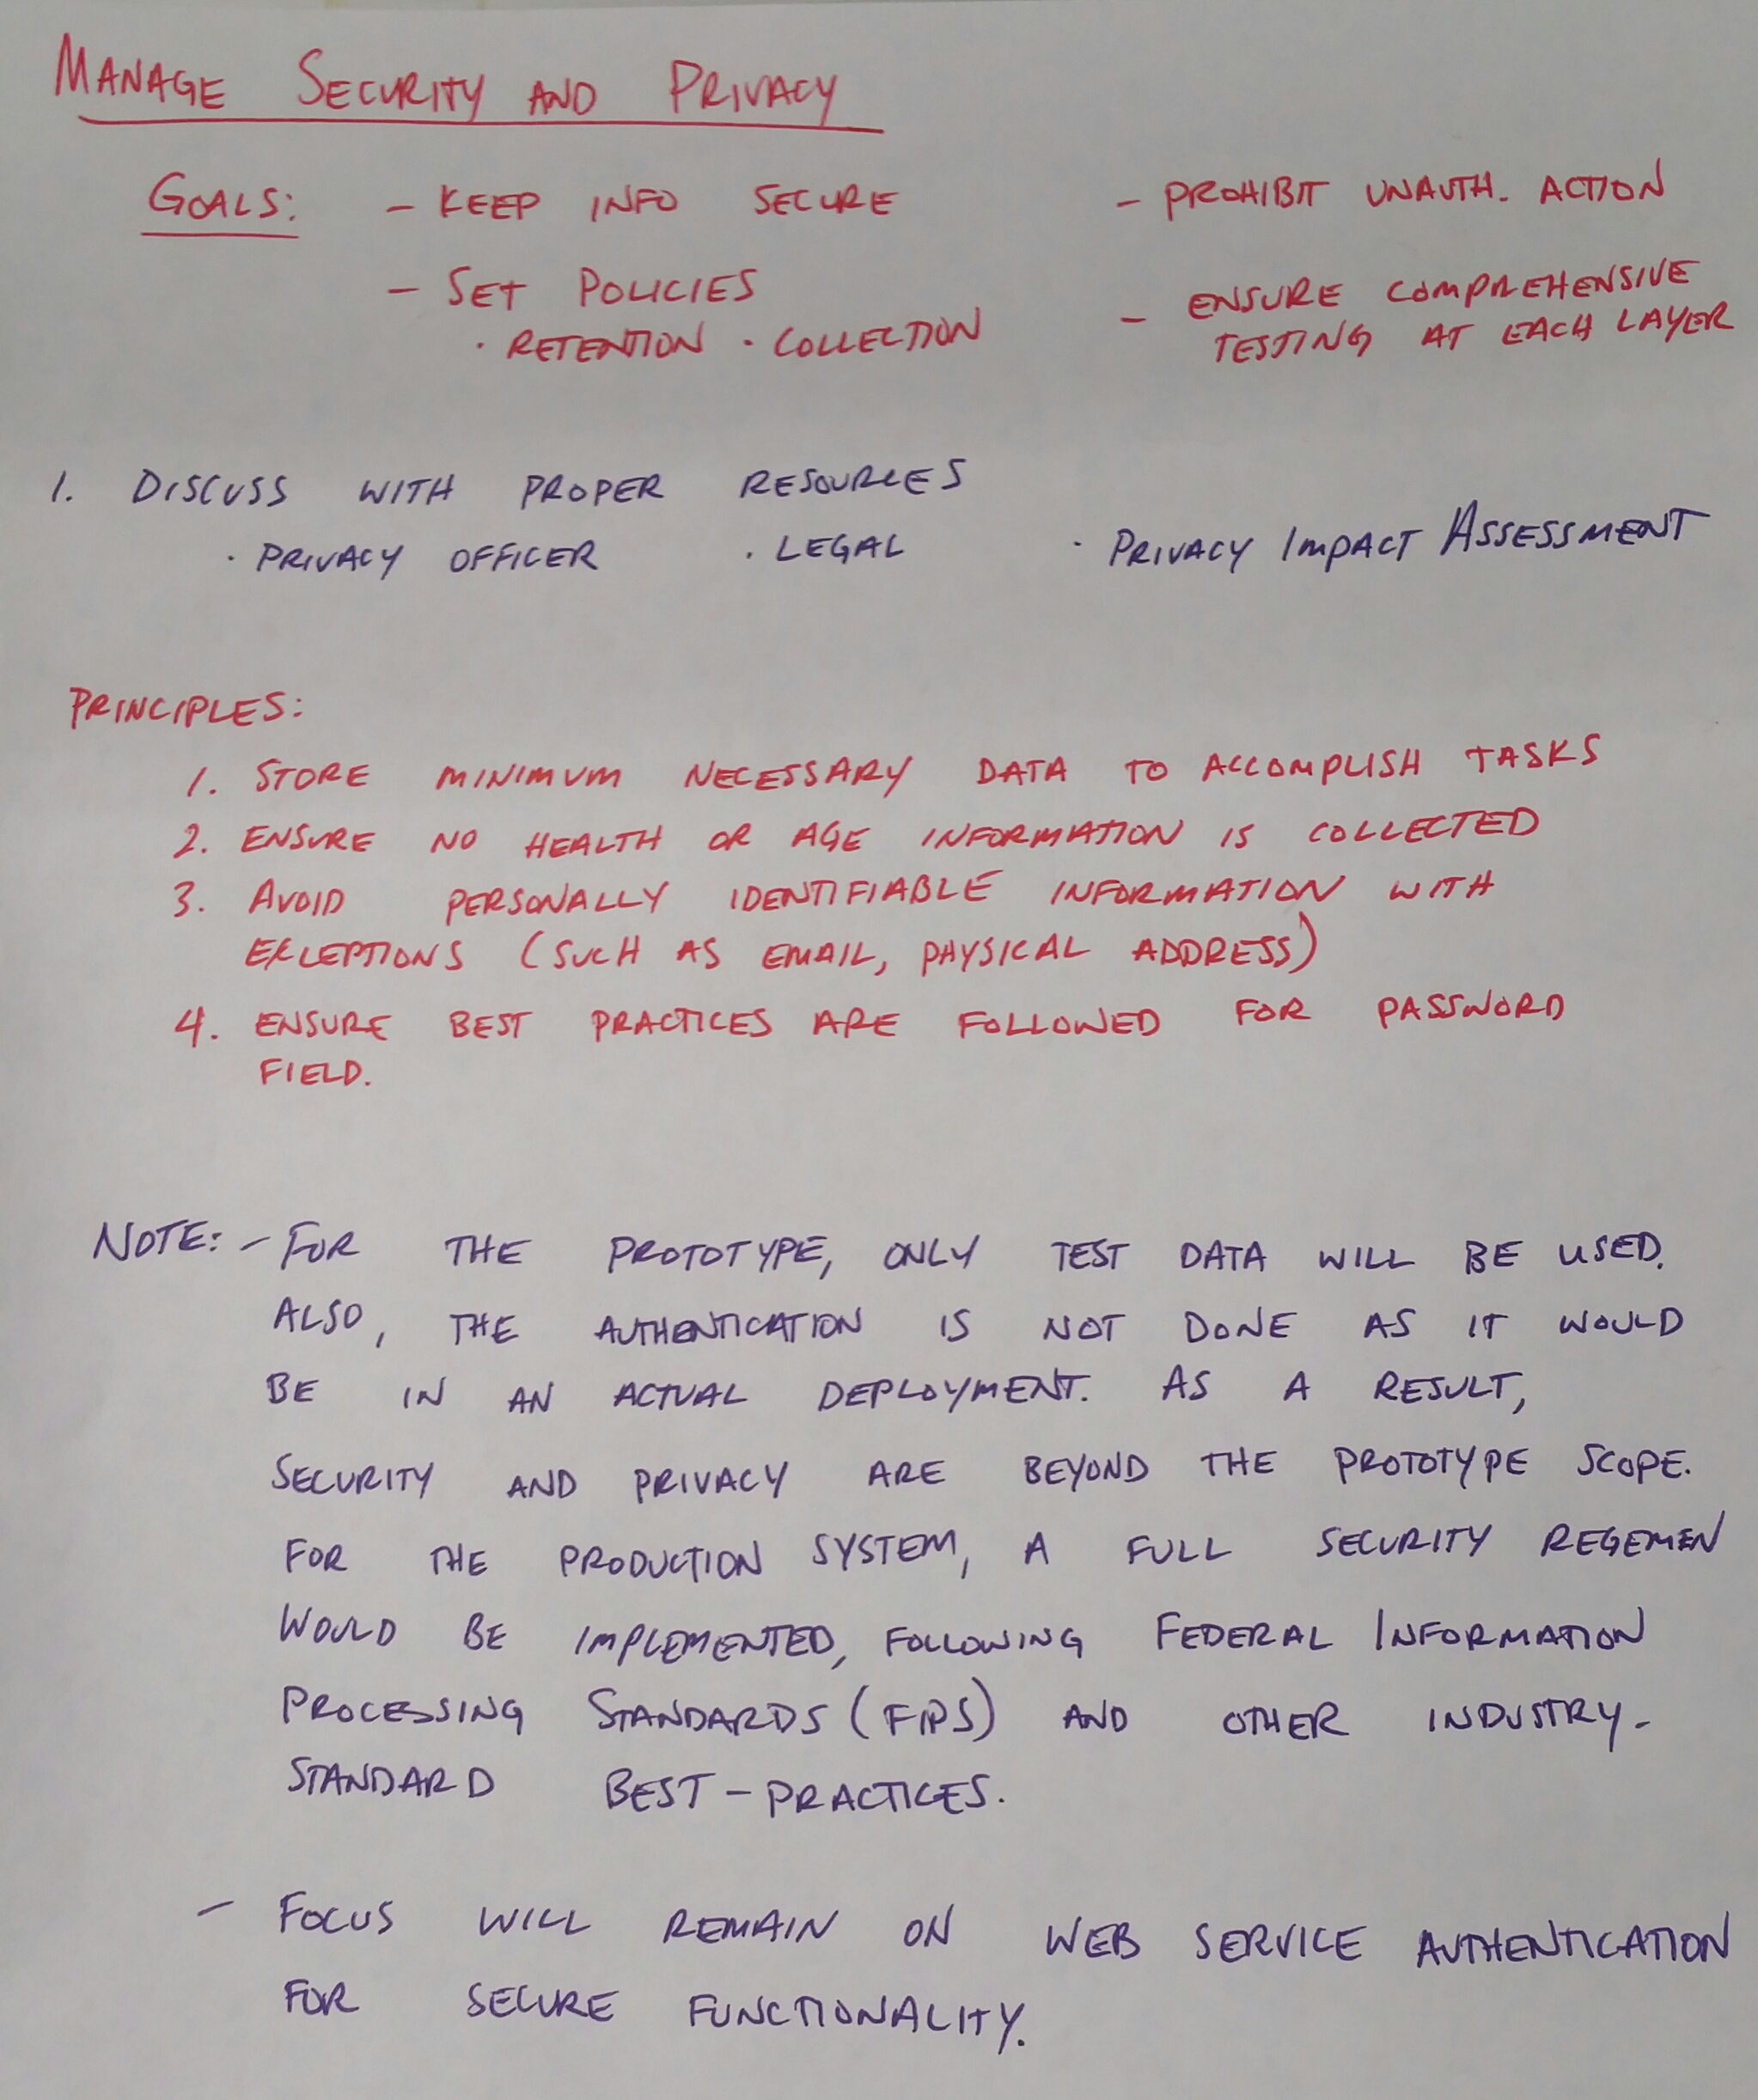 MANAGE SECURITY AND PRIVACY
GOALS: - KEEP INFO SECURE - PROHIBIT UNAUTH. ACTION
- SET POLICIES - ENSURE COMPREHENSIVE
· RETENTION · COLLECTION TESTING AT EACH LAYER
1. DISCUSS WITH PROPER RESOURCES
· PRIVACY OFFICER · LEGAL · PRIVACY IMPACT ASSESSMENT
PRINCIPLES:
1. STORE MINIMUM NECESSARY DATA TO ACCOMPLISH TASKS
2. ENSURE NO HEALTH OR AGE INFORMATION IS COLLECTED
3. AVOID PERSONALLY IDENTIFIABLE INFORMATION WITH
EXCEPTIONS (SUCH AS EMAIL, PHYSICAL ADDRESS)
4. ENSURE BEST PRACTICES ARE FOLLOWED FOR PASSWORD
FIELD.
NOTE: - FOR THE PROTOTYPE, ONLY TEST DATA WILL BE USED.
ALSO, THE AUTHENTICATION IS NOT DONE AS IT WOULD
BE IN AN ACTUAL DEPLOYMENT. AS A RESULT,
SECURITY AND PRIVACY ARE BEYOND THE PROTOTYPE SCOPE.
FOR THE PRODUCTION SYSTEM, A FULL SECURITY REGEMEN
WOULD BE IMPLEMENTED, FOLLOWING FEDERAL INFORMATION
PROCESSING STANDARDS (FIPS) AND OTHER INDUSTRY-
STANDARD BEST-PRACTICES.
- FOCUS WILL REMAIN ON WEB SERVICE AUTHENTICATION
FOR SECURE FUNCTIONALITY.